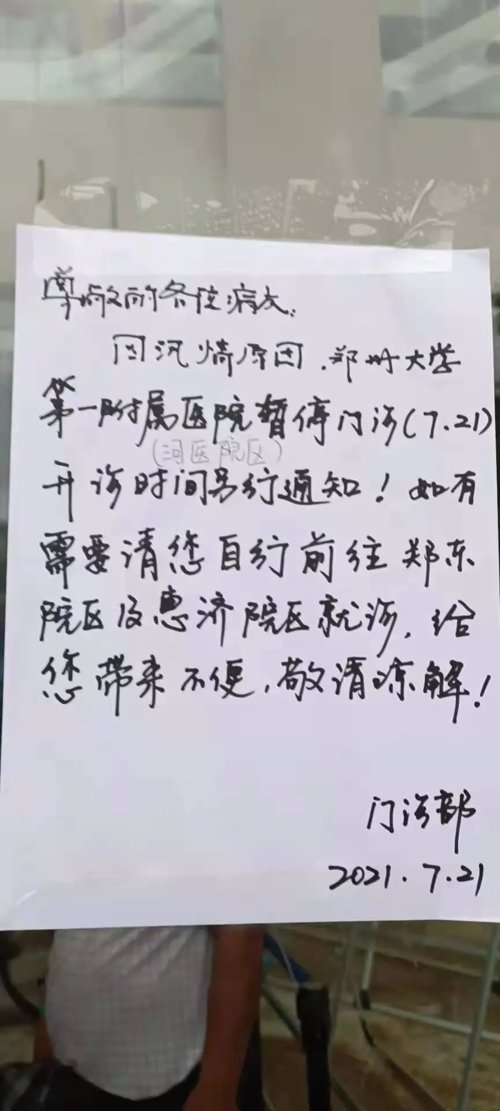 尊敬的各位病友:
因汛情原因,郑州大学
第一附属医院暂停门诊(7.21)
(河医院区)
开诊时间另行通知!如有
需要请您自行前往郑东
院区及惠济院区就诊,给
您带来不便,敬请凉解!
门诊部
2021.7.21